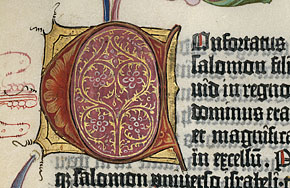 COnfortatus
salomon fili
uid in regno
dominus
et magnifica
in excelsū. P
qꝫ salomon uniuerso israheli